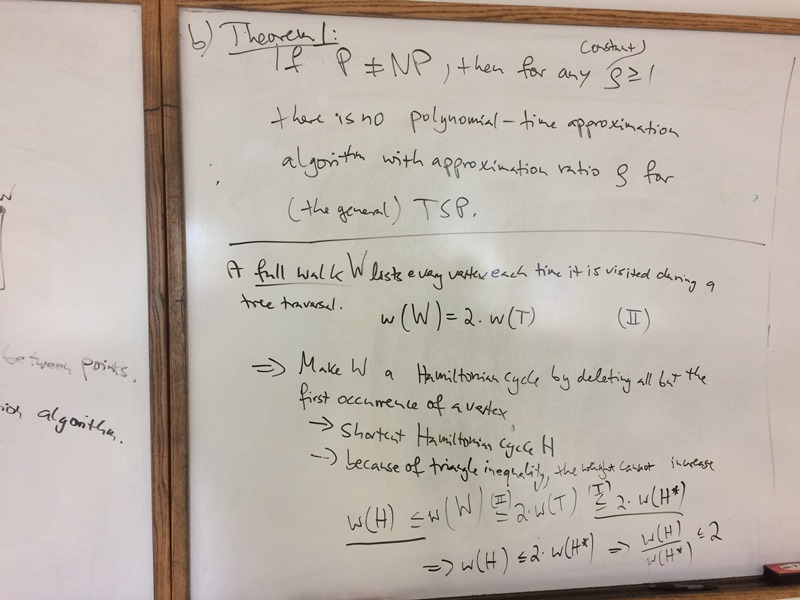 between points.
algorithm.
b) Theorem 1:
If P ≠ NP, then for any (constant) ρ ≥ 1
there is no polynomial-time approximation
algorithm with approximation ratio ρ for
(the general) TSP.
A full walk W lists every vertex each time it is visited during a
tree traversal.
w(W) = 2·w(T) (II)
=> Make W a Hamiltonian cycle by deleting all but the
first occurrence of a vertex
-> Shortcut Hamiltonian cycle H
-> because of triangle inequality, the weight cannot increase
w(H) ≤ w(W) (II) ≤ 2·w(T) (I) ≤ 2·w(H*)
=> w(H) ≤ 2·w(H*) => w(H)/w(H*) ≤ 2